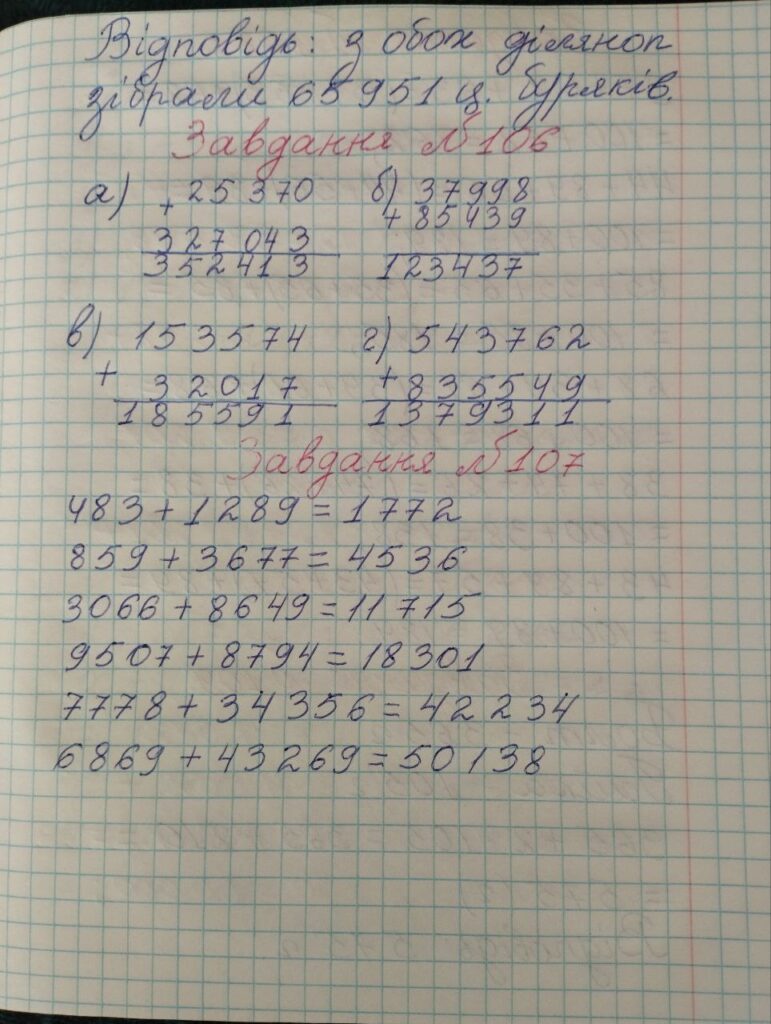 Відповідь: з обох діляноп
зібрали 65951 ц. буряків.
Завдання №106
а) + 25370 б) 37998
+ 85439
327043
352413 123437
в) 153574 г) 543762
+ 32017 + 835549
185591 1379311
Завдання №107
483+1289=1772
859+3677=4536
3066+8649=11715
9507+8794=18301
7778+34356=42234
6869+43269=50138